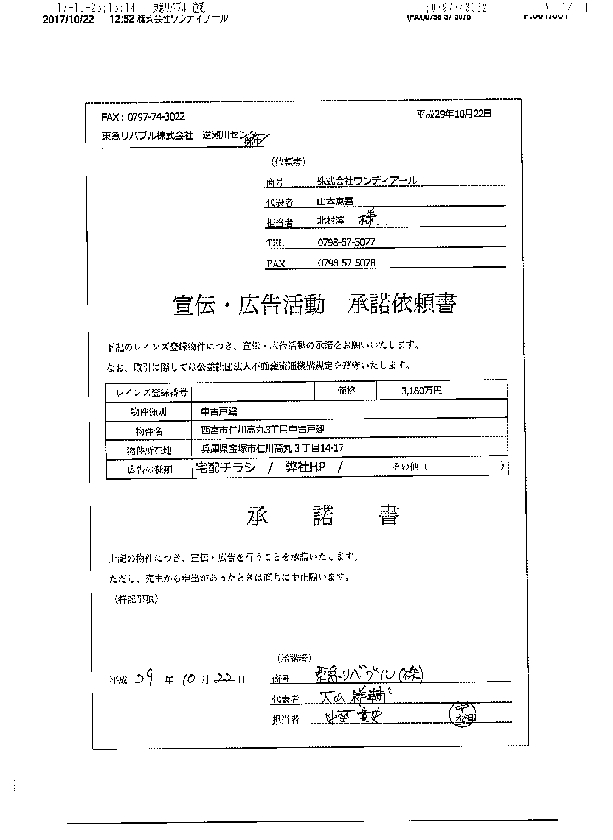 2017/10/22 12:52 株式会社ワンディアール
FAX：0797-74-3022
平成29年10月22日
東急リバブル株式会社 逆瀬川センター
（依頼者）
商号 株式会社ワンディアール
代表者
担当者 北村 様
TEL 0798-57-5077
FAX 0798-57-5078
宣伝・広告活動 承諾依頼書
下記のレインズ登録物件につき、宣伝・広告活動の承諾をお願いいたします。
なお、取引に際しては公益社団法人不動産流通機構規定を遵守いたします。
レインズ登録番号 価格 3,180万円
物件種別 中古戸建
物件名 西宮市仁川高丸3丁目中古戸建
物件所在地 兵庫県宝塚市仁川高丸３丁目14-17
広告の種類 宅配チラシ / 弊社HP / その他（ ）
承 諾 書
上記の物件につき、宣伝・広告を行うことを承諾いたします。
ただし、売主から申出があったときは直ちに中止願います。
（特記事項）
（承諾者）
平成 29 年 10 月 22 日
商号
代表者
担当者